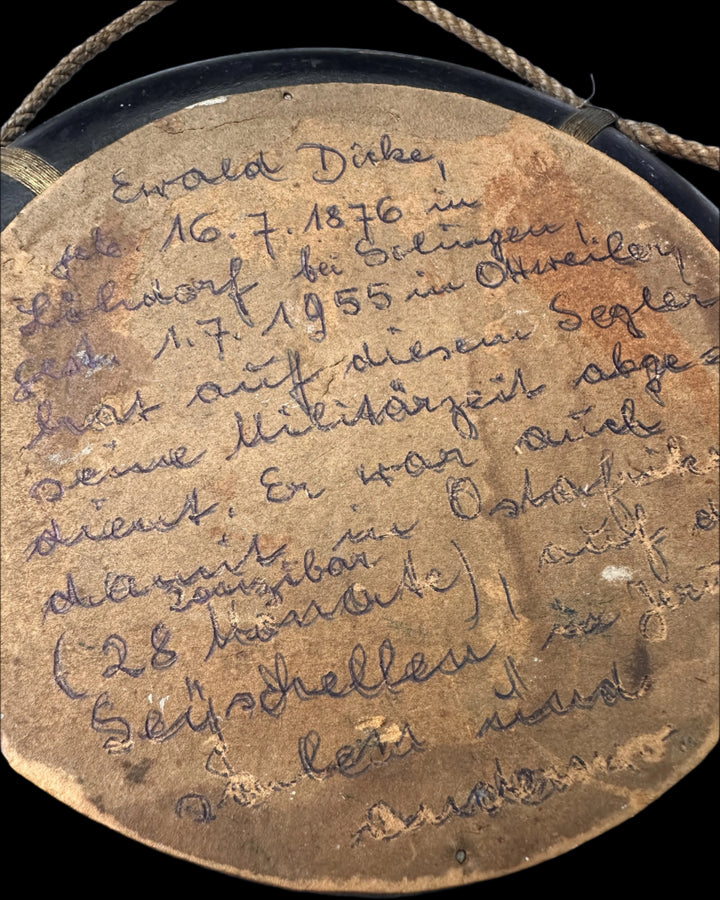 Ewald Dirke,
geb. 16.7.1876 in
Löhdorf bei Solingen,
gest. 1.7.1955 in Ottweiler,
hat auf diesem Segler
seine Militärzeit abge=
dient. Er war auch
damit in Ostafrika
Zanzibar
(28 Monate), auf d
Seyschellen, in
und